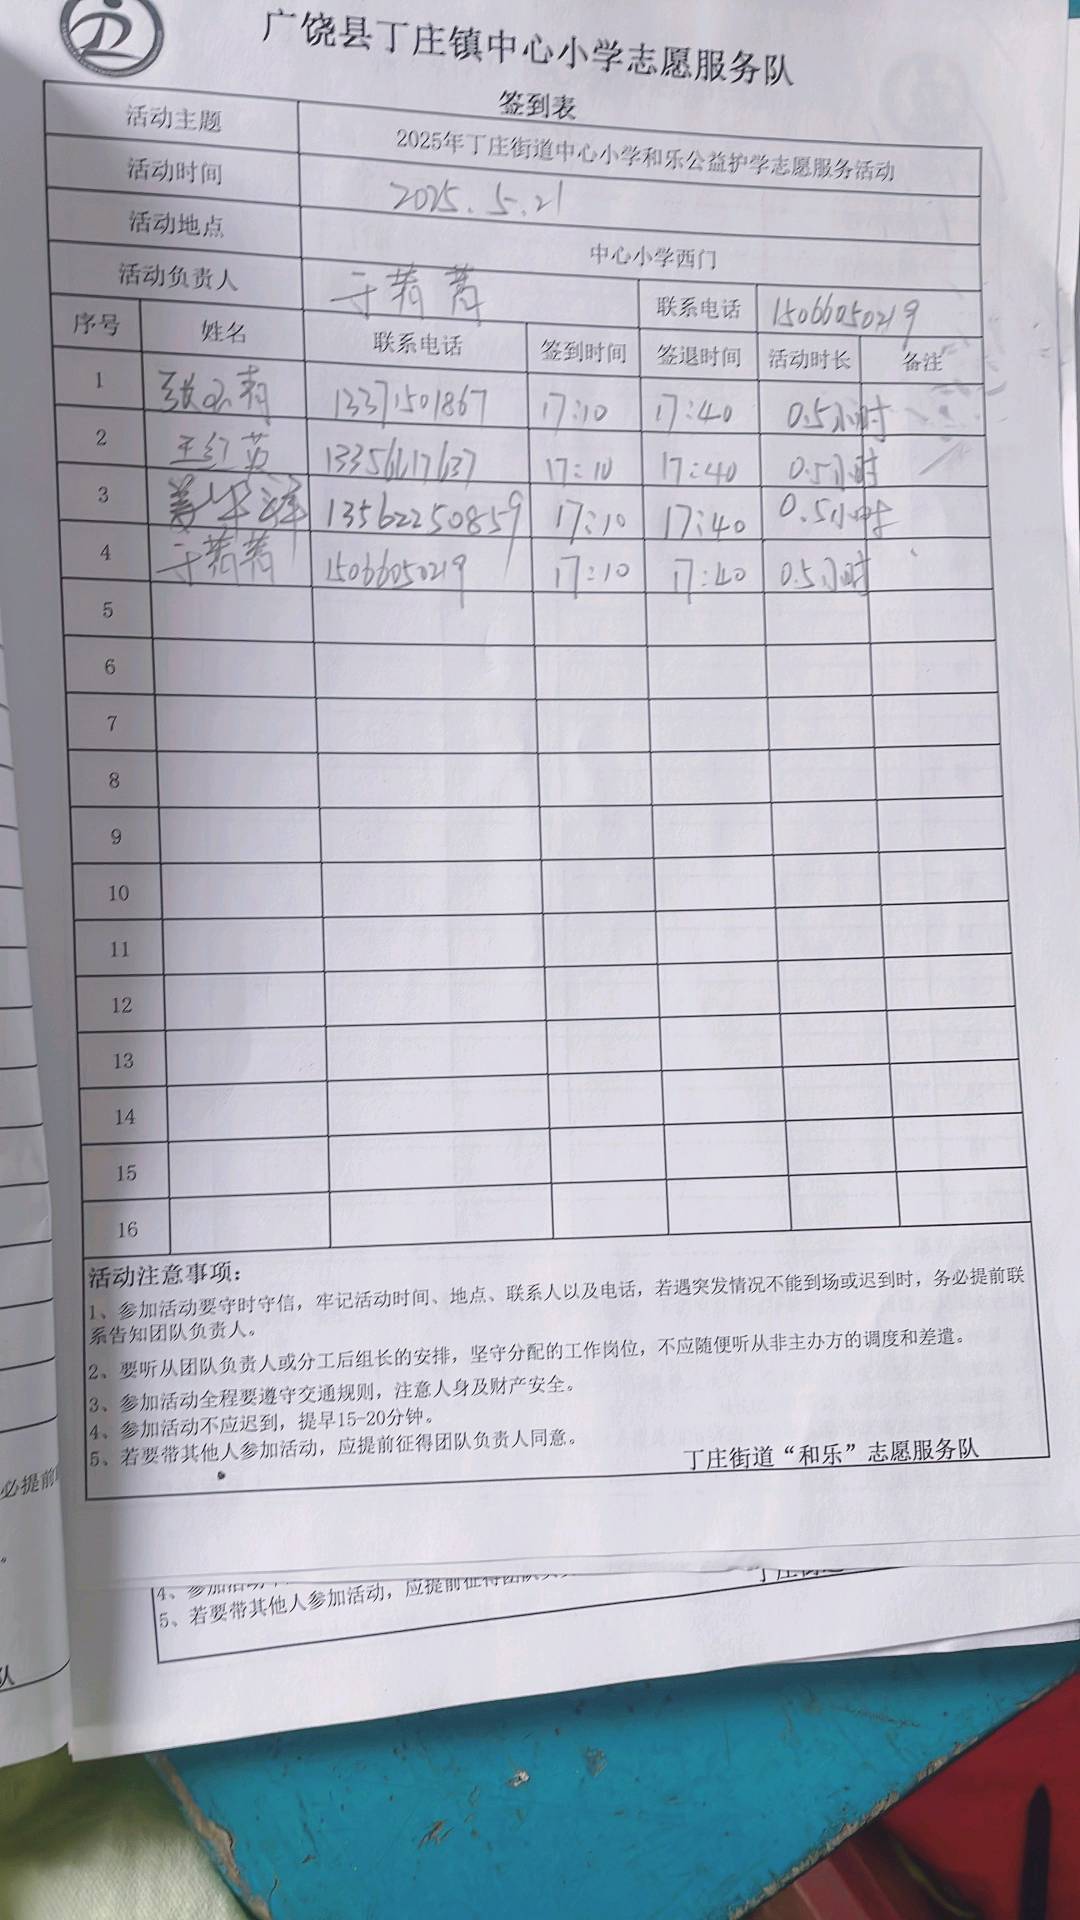 广饶县丁庄镇中心小学志愿服务队
签到表
活动主题 2025年丁庄街道中心小学和乐公益护学志愿服务活动
活动时间 2025.5.21
活动地点 中心小学西门
活动负责人 于菁菁 联系电话 15066050219
序号 姓名 联系电话 签到时间 签退时间 活动时长 备注
1 13371501867 17:10 17:40 0.5小时
2 王红英 13356617637 17:10 17:40 0.5小时
3 姜华泽 13562250859 17:10 17:40 0.5小时
4 于菁菁 15066050219 17:10 17:40 0.5小时
5
6
7
8
9
10
11
12
13
14
15
16
活动注意事项:
1、参加活动要守时守信，牢记活动时间、地点、联系人以及电话，若遇突发情况不能到场或迟到时，务必提前联
系告知团队负责人。
2、要听从团队负责人或分工后组长的安排，坚守分配的工作岗位，不应随便听从非主办方的调度和差遣。
3、参加活动全程要遵守交通规则，注意人身及财产安全。
4、参加活动不应迟到，提早15-20分钟。
5、若要带其他人参加活动，应提前征得团队负责人同意。
丁庄街道“和乐”志愿服务队
必提前
队
4、参加活动
5、若要带其他人参加活动，应提前征得团队